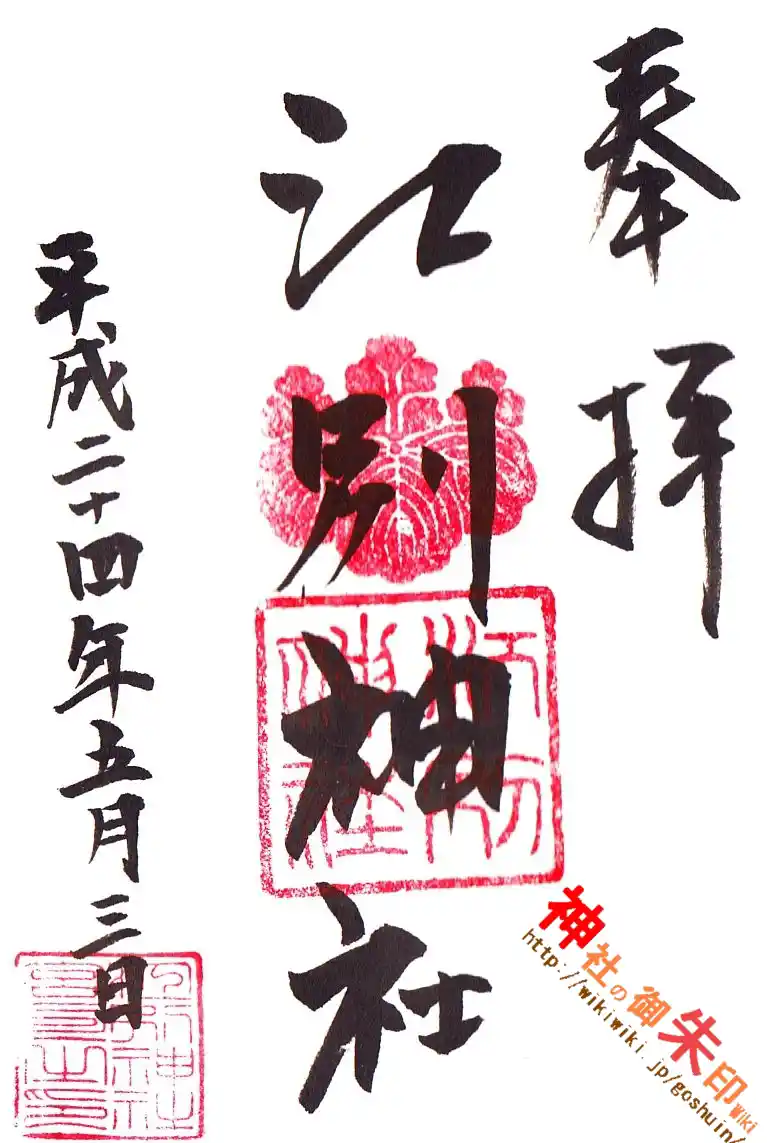 奉拝
江別神社
平成二十四年五月三日
江別神社
神社の御朱印wiki
http://wikiwiki.jp/goshuin/